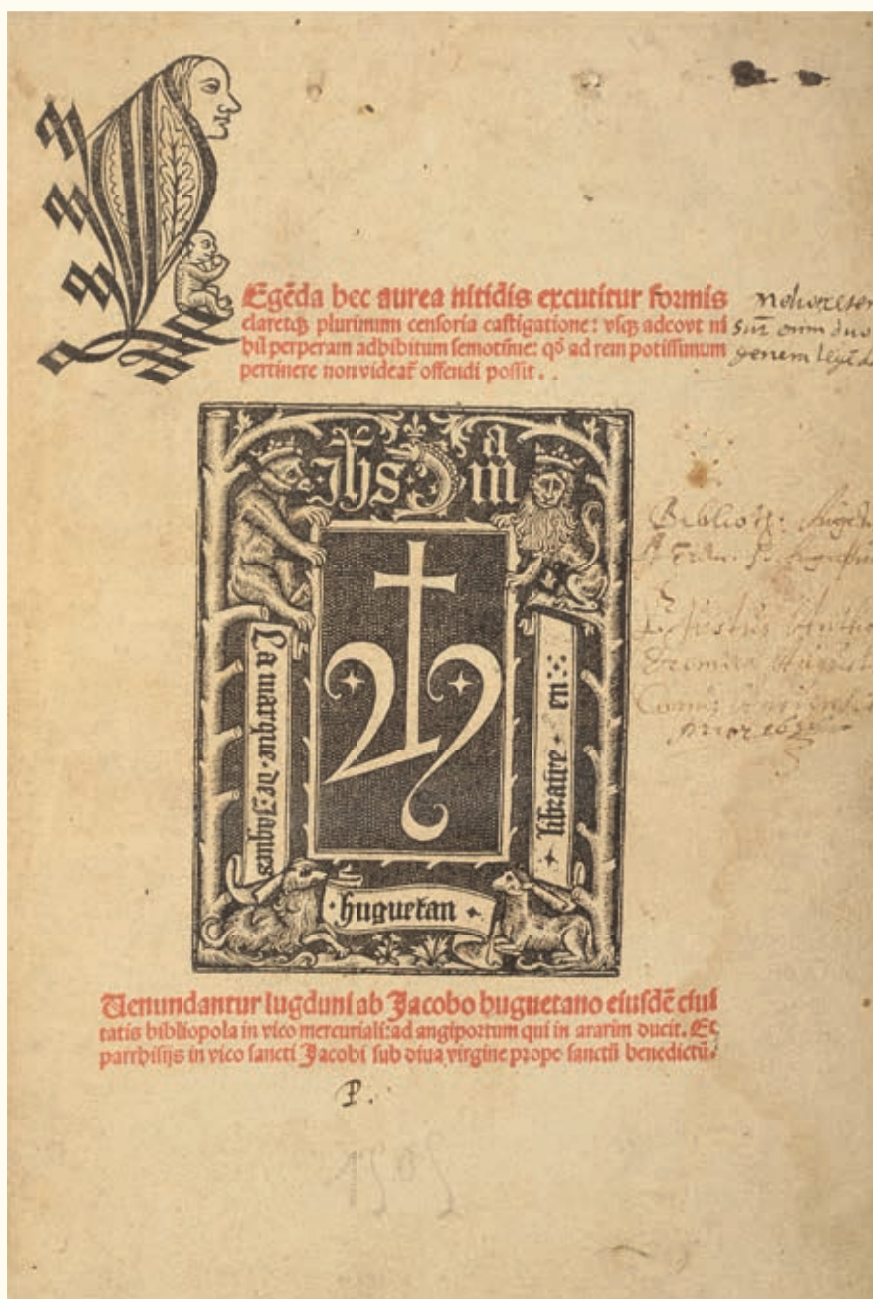 LEgēda hec aurea nitidis excutitur formis
claretqꝫ plurimum censoria castigatione: vsqꝫ adeovt ni
hil perperam adhibitum semotūue: qđ ad rem potissimum
pertinere non videat̄ offendi possit.
Jhs
m
a
La marque de Jaques
huguetan
libraire en
Uenundantur lugduni ab Jacobo huguetano eiusdē ciui
tatis bibliopola in vico mercuriali: ad angiportum qui in ararim ducit. Et
parrhisijs in vico sancti Jacobi sub diua virgine prope sanctū benedictū.
P.
1505